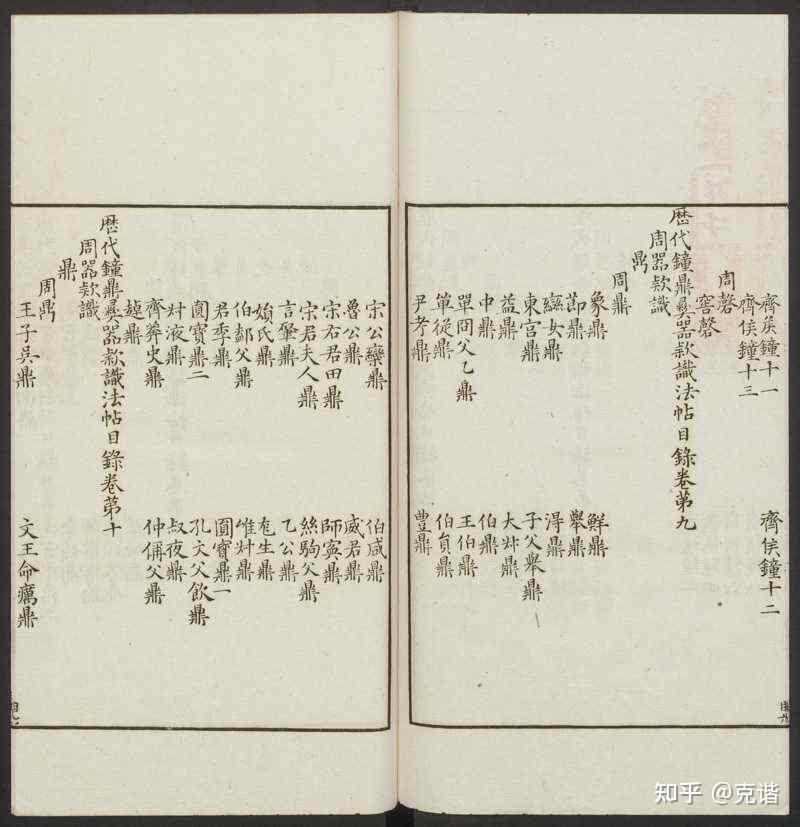 齊矦鐘十一 齊矦鐘十二
齊矦鐘十三
周磬
窖磬
歴代鐘鼎彝器款識法帖目錄卷第九
周器款識
鼎
周鼎
象鼎 鮮鼎
節鼎 舉鼎
䜌女鼎 淂鼎
東宮鼎 子父舉鼎
益鼎 大叔鼎
中鼎 伯鼎
單冏父乙鼎 王伯鼎
單從鼎 伯員鼎
尹考鼎 豐鼎
目六
宋公欒鼎 伯咸鼎
魯公鼎 威君鼎
宋右君田鼎 師寏鼎
宋君夫人鼎 絲駒父鼎
言肇鼎 乙公鼎
氏鼎 生鼎
伯父鼎 惟叔鼎
君季鼎 圓寶鼎一
圓寶鼎二 孔文父飲鼎
液鼎 叔夜鼎
齊莽史鼎 仲偁父鼎
鼎
歴代鐘鼎彝器款識法帖目錄卷第十
周器款識
鼎
周鼎
王子吳鼎 文王命癘鼎
目七
知乎 @克谐